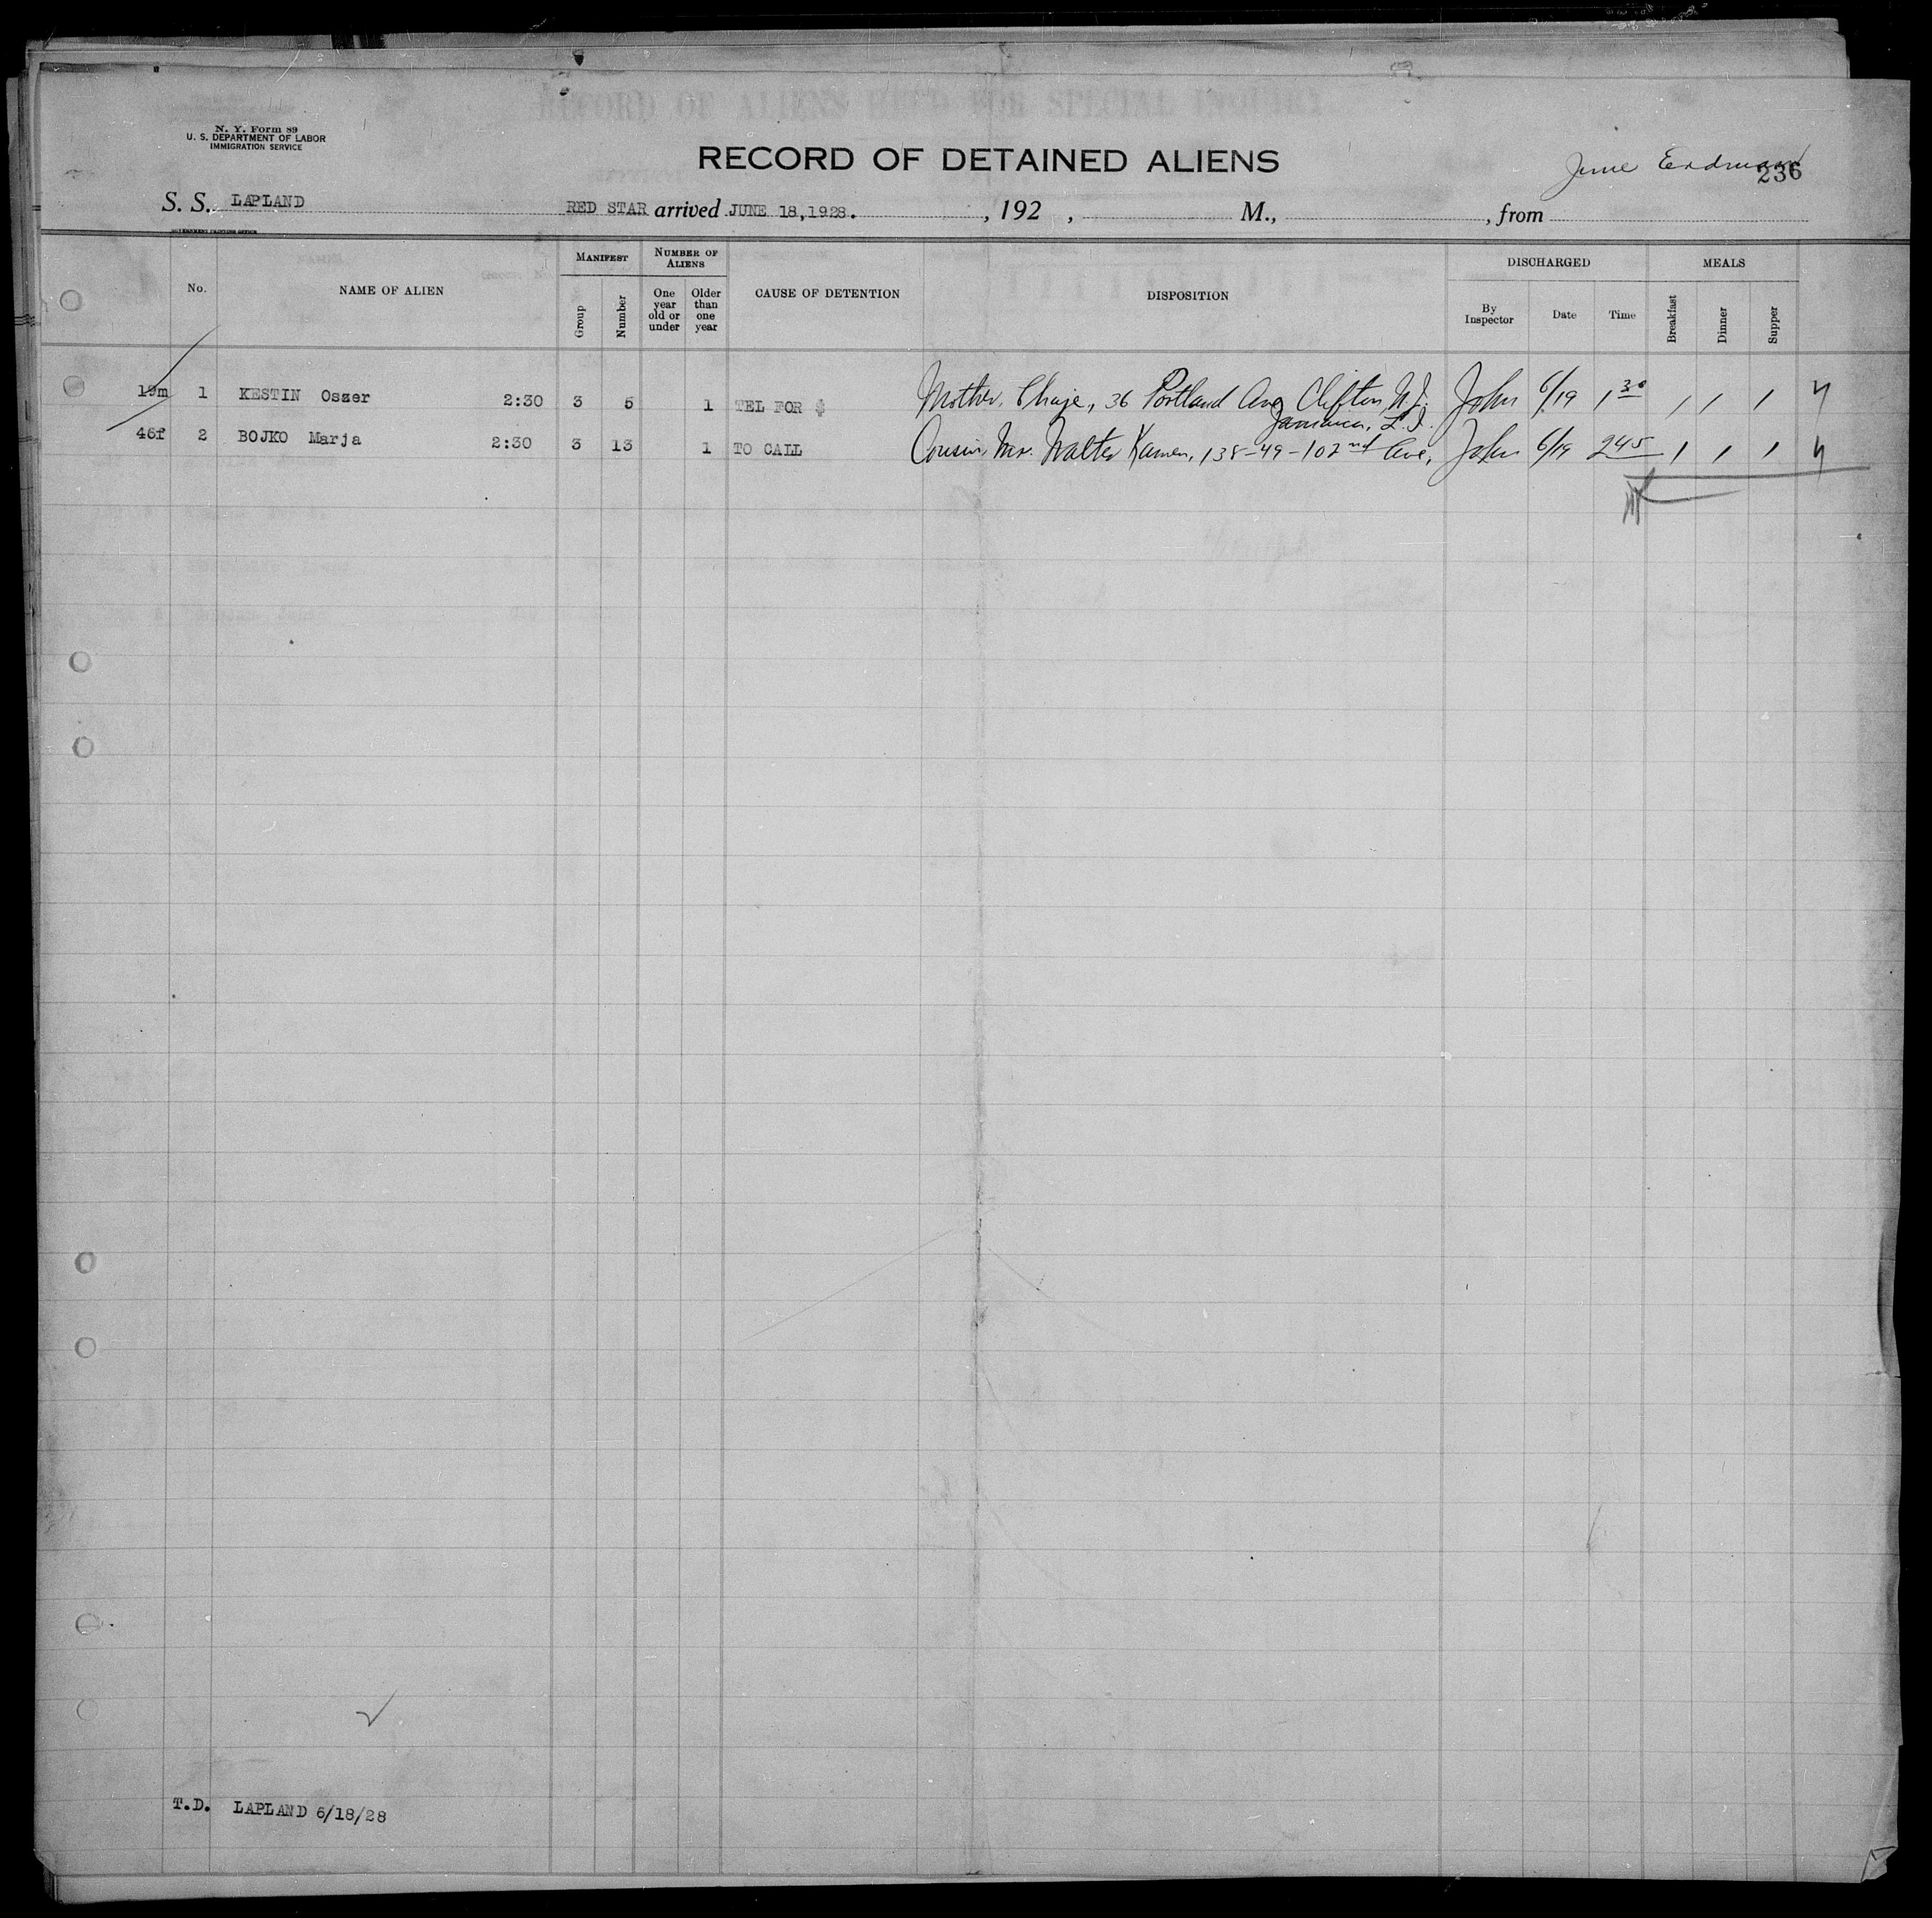 N. Y. Form 89
U. S. DEPARTMENT OF LABOR
IMMIGRATION SERVICE
RECORD OF DETAINED ALIENS
June Erdman
236
S. S. LAPLAND RED STAR arrived JUNE 18,1928. , 192 , M., , from
GOVERNMENT PRINTING OFFICE
No. NAME OF ALIEN MANIFEST NUMBER OF ALIENS CAUSE OF DETENTION DISPOSITION DISCHARGED MEALS
Group Number One year old or under Older than one year By Inspector Date Time Breakfast Dinner Supper
19m 1 KESTIN Oszer 2:30 3 5 1 TEL FOR $ Mother, Chaje, 36 Portland Ave Clifton, N.J. John 6/19 1 30 1 1 1 4
Jamaica, L.I.
46f 2 BOJKO Marja 2:30 3 13 1 TO CALL Cousin, Mr. Walter Kamen, 138-49-102nd Ave, John 6/19 2 45 1 1 1 4
T.D. LAPLAND 6/18/28